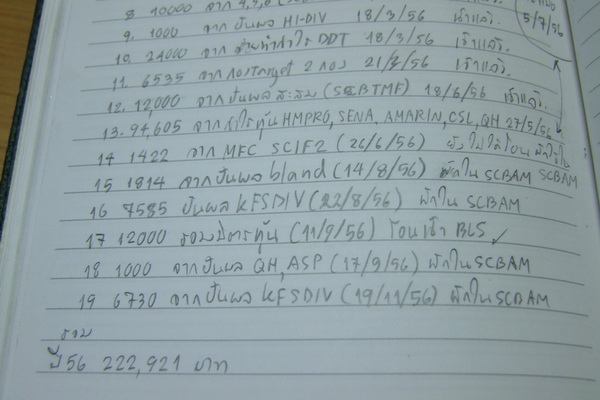 8 10000 จาก
9. 1000 จาก ปันผล HI-DIV 18/3/56 เข้าแล้ว.
5/7/56
10. 24000 จาก DDT 18/3/56 เข้าแล้ว.
11. 6535 จาก กองTarget 2 กอง 21/ /56 เข้าแล้ว.
12. 12,000 จาก ปันผล สะสม (SCBTMF) 18/6/56 เข้าแล้ว.
13. 94,605 จาก กำไรหุ้น HMPRO, SENA, AMARIN, CSL, QH 27/5/56
14 1422 จาก MFC SCIF2 (26/6/56) ยังไม่ได้โอน พักใน
15 1814 จากปันผล bland (14/8/56) พักใน SCBAM SCBAM
16 7585 ปันผล KFSDIV (22/8/56) พักใน SCBAM
17 12000 รวมมิตรหุ้น (11/9/56) โอนเข้า BLS ✓
18 1000 จากปันผล QH, ASP (17/9/56) พักใน SCBAM
19 6730 จากปันผล KFSDIV (19/11/56) พักใน SCBAM
รวม
ปี 56 222,921 บาท